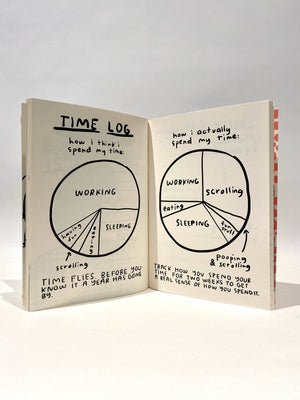 TIME LOG
how i think i
spend my time:
WORKING
having
fun
eating
SLEEPING
scrolling
TIME FLIES. BEFORE YOU
KNOW IT A YEAR HAS GONE
BY.
how i actually
spend my time:
WORKING
scrolling
eating
SLEEPING
pooping
& scrolling
TRACK HOW YOU SPEND YOUR
TIME FOR TWO WEEKS TO GET
A REAL SENSE OF HOW YOU SPEND IT.